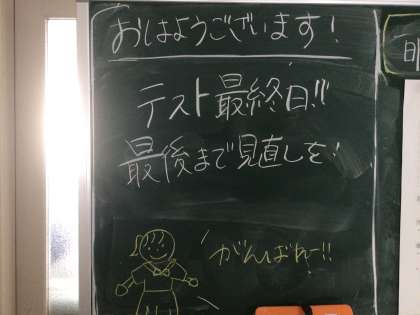 おはようございます!
テスト最終日!!
最後まで見直しを!
がんばれー!!